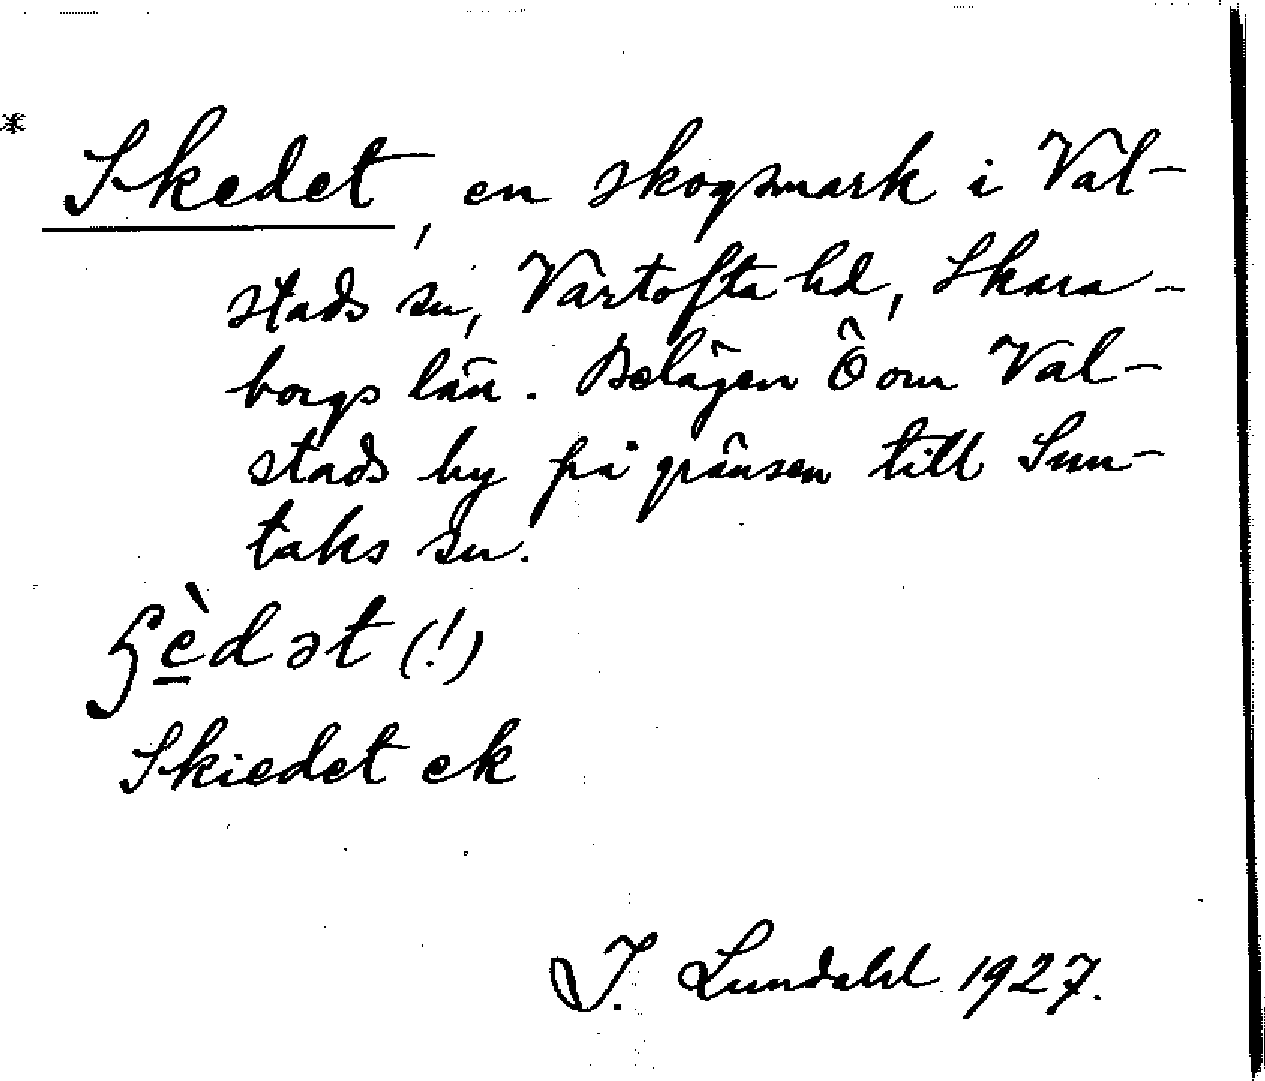 * Skedet, en skogsmark i Val-
stads sn, Vartofta hd, Skara-
borgs län. Belägen Ö om Val-
stads by på gränsen till Sun-
taks sn.
ʃèdət (!)
Skiedet ek
J. Lundahl 1927.